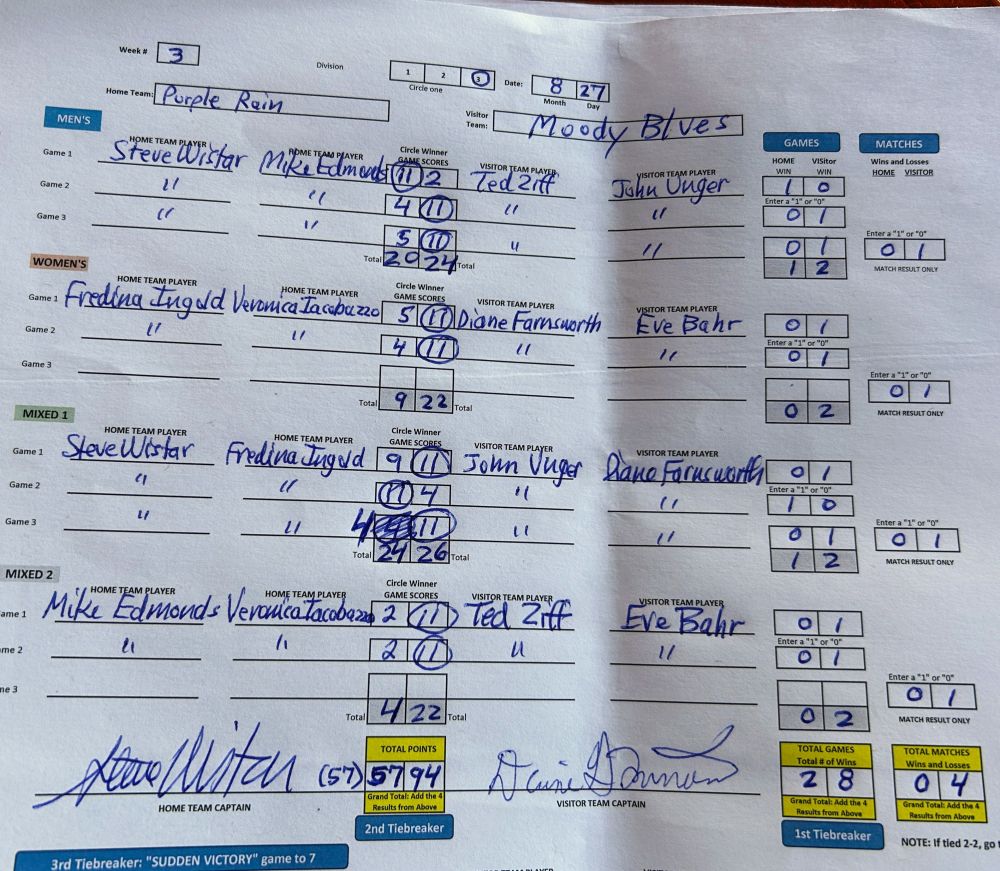 Week # 3
Division 1 2 3 Date: 8 27
Circle one Month Day
Home Team: Purple Rain
Visitor Team: Moody Blues
MEN'S GAMES MATCHES
HOME TEAM PLAYER HOME TEAM PLAYER Circle Winner GAME SCORES VISITOR TEAM PLAYER VISITOR TEAM PLAYER HOME WIN Visitor WIN Wins and Losses HOME VISITOR
Game 1 Steve Wistar Mike Edmonds 11 2 Ted Ziff John Unger 1 0
Enter a "1" or "0"
Game 2 " " 4 11 " " 0 1
Game 3 " " 5 11 " " 0 1
Enter a "1" or "0"
0 1
Total 20 24 Total 1 2
MATCH RESULT ONLY
WOMEN'S
HOME TEAM PLAYER HOME TEAM PLAYER Circle Winner GAME SCORES VISITOR TEAM PLAYER VISITOR TEAM PLAYER
Game 1 Fredina Ingold Veronica Iacobuzzo 5 11 Diane Farnsworth Eve Bahr 0 1
Enter a "1" or "0"
Game 2 " " 4 11 " " 0 1
Game 3
Enter a "1" or "0"
0 1
Total 9 22 Total 0 2
MATCH RESULT ONLY
MIXED 1
HOME TEAM PLAYER HOME TEAM PLAYER Circle Winner GAME SCORES VISITOR TEAM PLAYER VISITOR TEAM PLAYER
Game 1 Steve Wistar Fredina Ingold 9 11 John Unger Diane Farnsworth 0 1
Enter a "1" or "0"
Game 2 " " 11 4 " " 1 0
Game 3 " " 4 11 " " 0 1
Enter a "1" or "0"
0 1
Total 24 26 Total 1 2
MATCH RESULT ONLY
MIXED 2
HOME TEAM PLAYER HOME TEAM PLAYER Circle Winner GAME SCORES VISITOR TEAM PLAYER VISITOR TEAM PLAYER
ame 1 Mike Edmonds Veronica Iacobuzzo 2 11 Ted Ziff Eve Bahr 0 1
Enter a "1" or "0"
me 2 " " 2 11 " " 0 1
me 3
Enter a "1" or "0"
0 1
Total 4 22 Total 0 2
MATCH RESULT ONLY
Steve Wistar
HOME TEAM CAPTAIN
TOTAL POINTS
(57) 57 94
Grand Total: Add the 4 Results from Above
2nd Tiebreaker
VISITOR TEAM CAPTAIN
TOTAL GAMES
Total # of Wins
2 8
Grand Total: Add the 4 Results from Above
1st Tiebreaker
TOTAL MATCHES
Wins and Losses
0 4
Grand Total: Add the 4 Results from Above
NOTE: If tied 2-2, go t
3rd Tiebreaker: "SUDDEN VICTORY" game to 7
HOME TEAM PLAYER VISITOR TEAM PLAYER